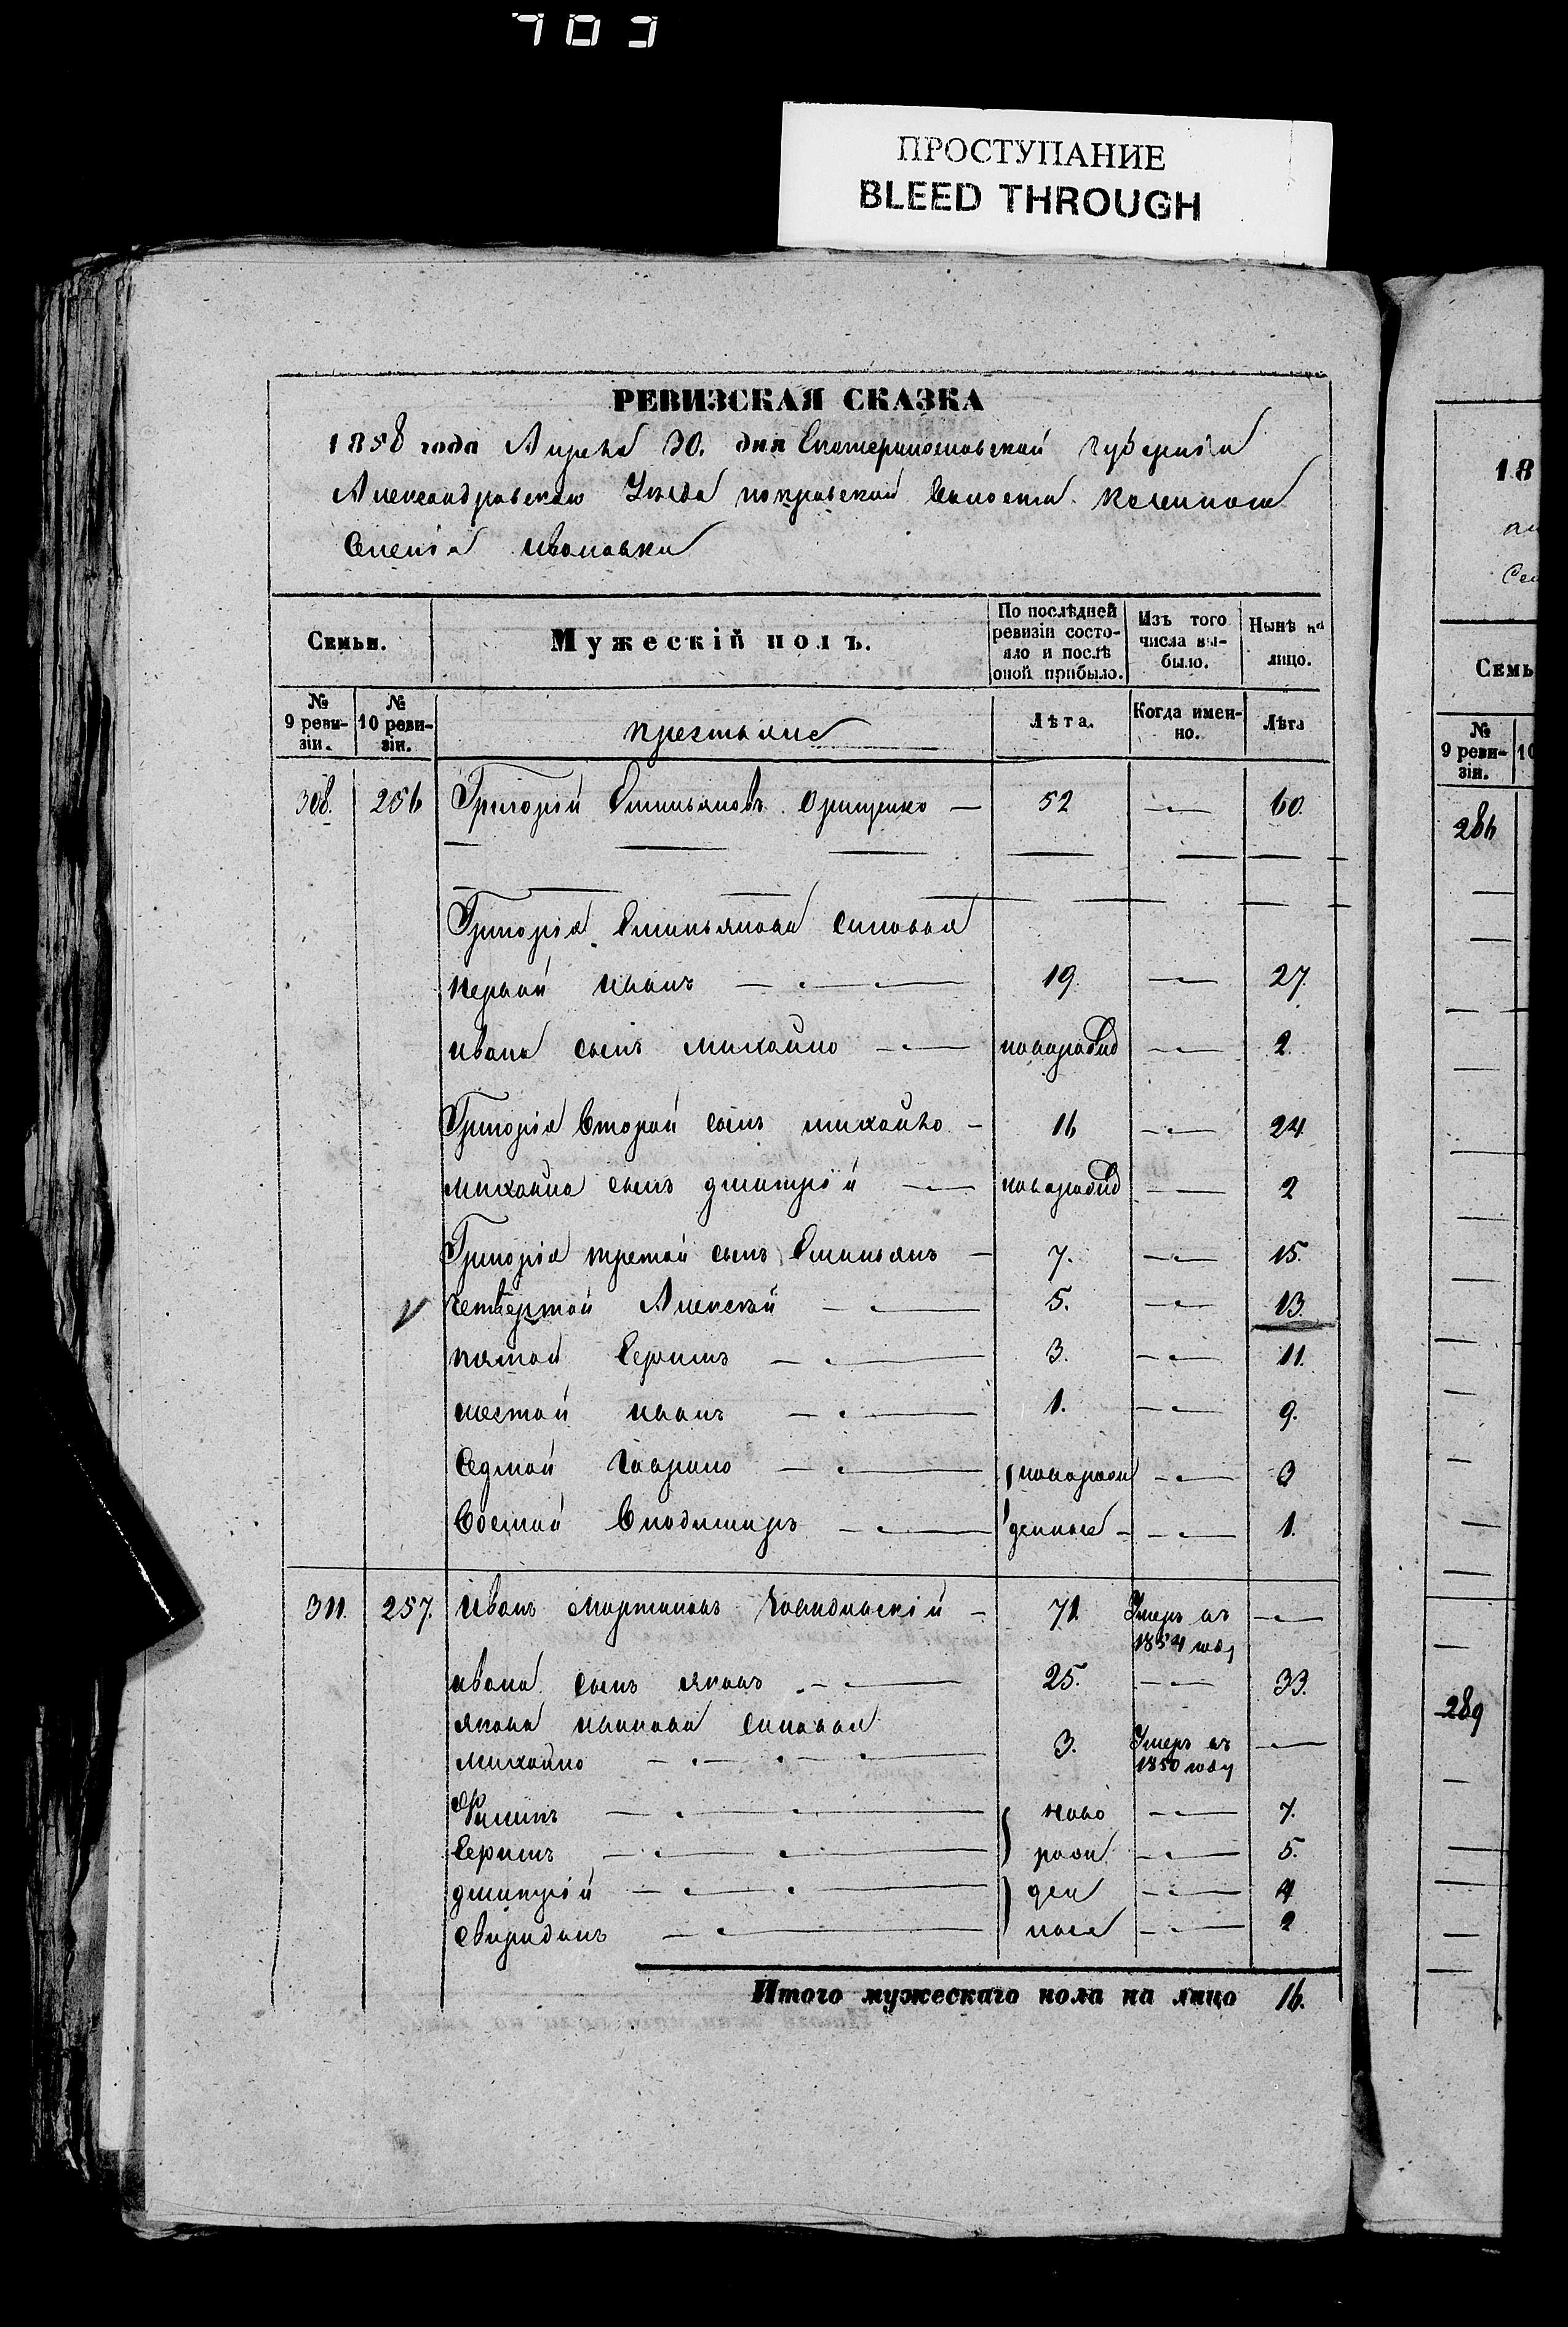 ПРОСТУПАНИЕ
BLEED THROUGH
РЕВИЗСКАЯ СКАЗКА
1858 года Апреля 30. дня Екатеринославской Губернiи
Александровского Уезда покровской Волости Козенного
Селенiя Ивановки
Семьи. Мужескій полъ. По послѣдней ревизіи состояло и послѣ оной прибыло. Изъ того числа выбыло. Нынѣ на лицо.
№ 9 ревизіи. № 10 ревизіи. крестьяне Лѣта. Когда именно. Лѣта
308. 256 Григорiй Емильяновъ Орищенко — 52 — 60.
Григорiя Емильянова синовья
первой иванъ — 19. — 27.
ивана сынъ михайло — новорожд — 2.
Григорiя Второй сынъ михайло — 16 — 24
михайла сынъ дмитрiй — новорожд — 2
Григорiя третой сынъ Емильянъ — 7. — 15.
четвертой Алексѣй — 5. — 13.
пятой Ефимъ — 3. — 11.
шестой иванъ — 1. — 9.
Седмой Гаврило — новорож — 3
Восмой Владимиръ —денные — 1.
311. 257. Иванъ Мартиновъ — 71. Умеръ въ 1854 году —
ивана сынъ яковъ — 25. — 33.
якова иванова синовья
михайло — 3. Умеръ въ 1850 году —
Филипъ — ново — 7.
Ефимъ — рож — 5.
дмитрiй — ден — 4
Свиридонъ — ные — 2
Итого мужескаго пола на лицо 16.
18
Семь
№ 9 ревизіи. 10
286
289